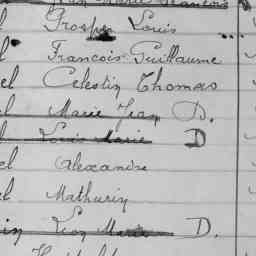 Grosper Louis
l Francois Guillaume
el Celestin Thomas
el Marie Jean D.
l Louis Marie D
el Alexandre
el Mathurin
in Léon Marie D.